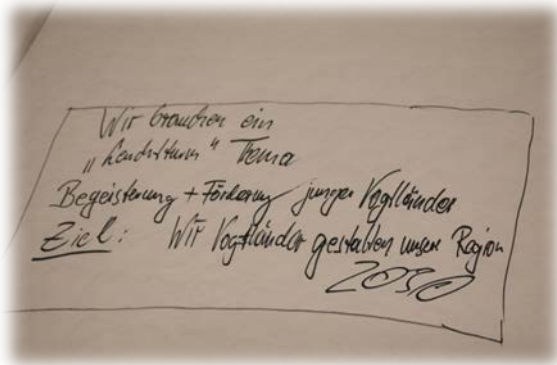 Wir brauchen ein
„Leuchtturm“ Thema
Begeisterung + Förderung junger Vogtländer
Ziel: Wir Vogtländer gestalten unsere Region
2030